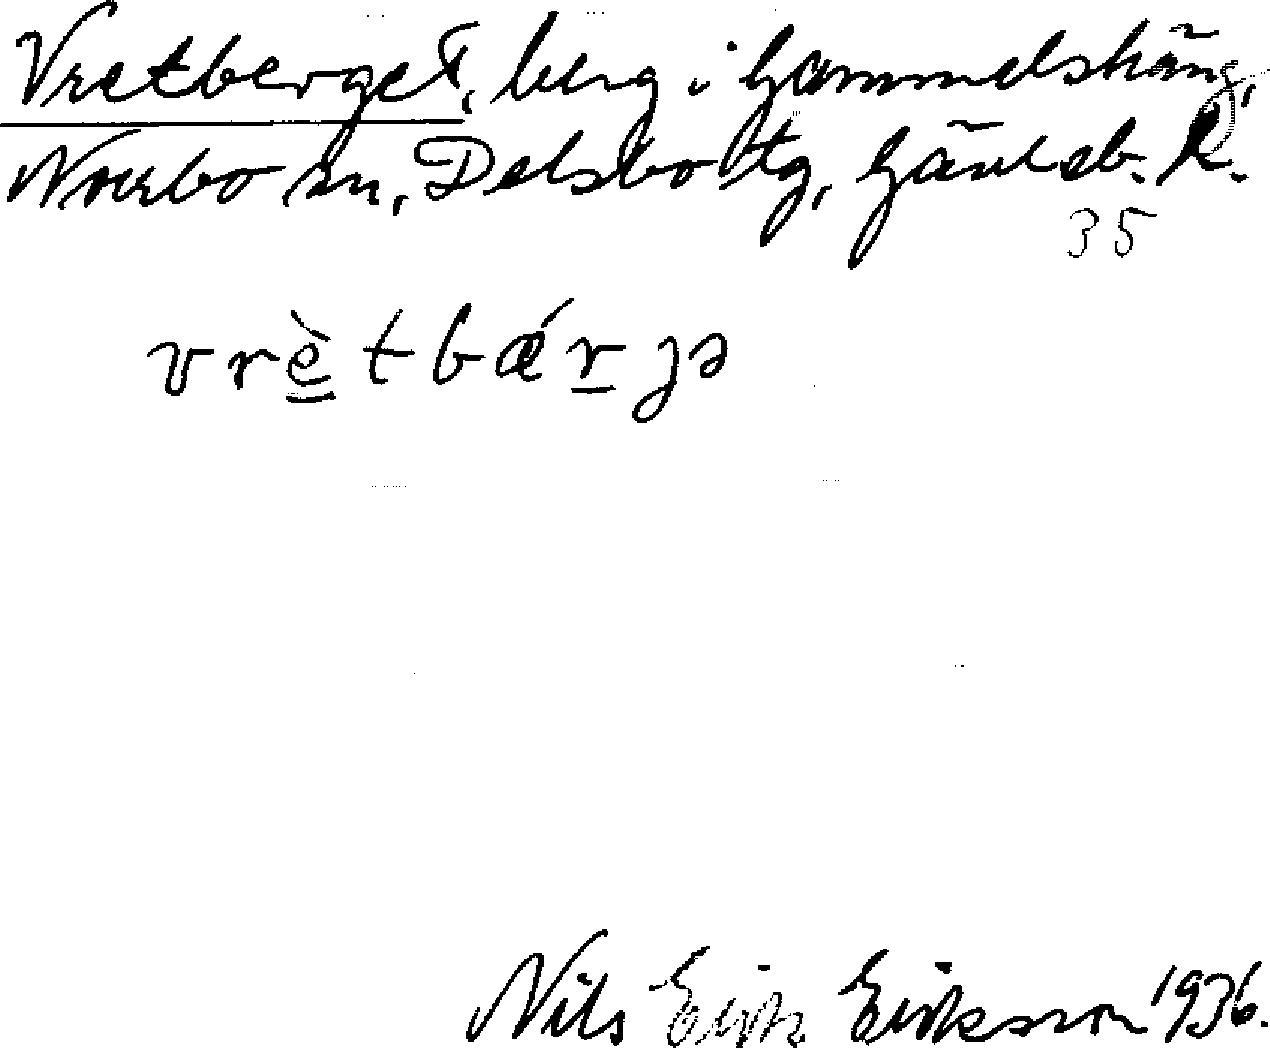 Vretberget, berg i Gammelshäng,
Norrbo sn, Delsbo tg, Gävleb. l.
35
vrè̳tbǽr̲jə
Nils Erik Eriksson 1936.